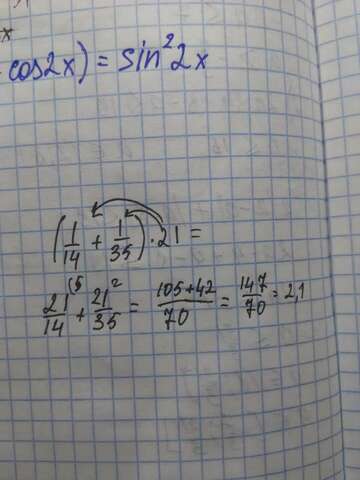 x
cos2x) = sin²2x
(1/14 + 1/35) · 21 =
21⁽⁵/14 + 21²/35 = 105+42/70 = 147/70 = 2,1